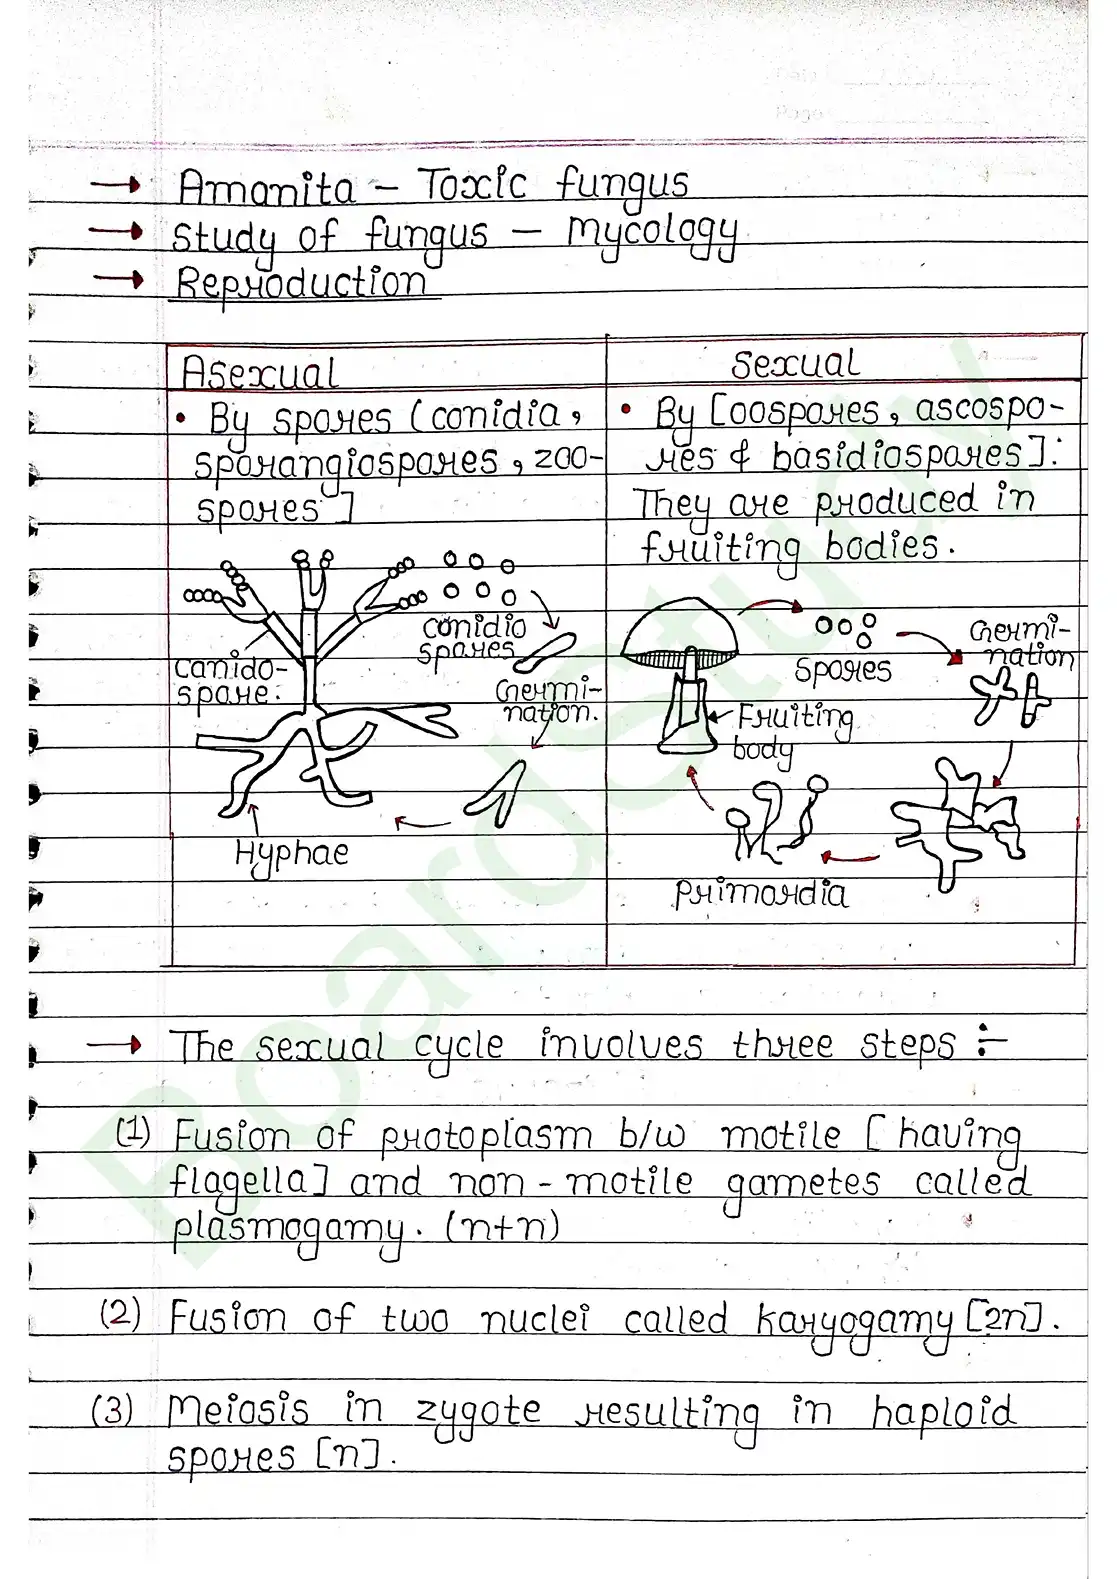 Date
Page
→ Amanita - Toxic fungus
→ Study of fungus - Mycology
→ Reproduction
Asexual
• By spores (conidia,
sporangiospores, zoo-
spores]
conidio
spores
Canido-
spore.
Germi-
nation.
Hyphae
Sexual
• By [oospores, ascospo-
res & basidiospores]:
They are produced in
fruiting bodies.
Spores
Germi-
nation
Fruiting
body
Primordia
→ The sexual cycle involves three steps :-
(1) Fusion of protoplasm b/w motile [having
flagella] and non-motile gametes called
plasmogamy. (n+n)
(2) Fusion of two nuclei called karyogamy [2n].
(3) Meiosis in zygote resulting in haploid
spores [n].
BoardStudy